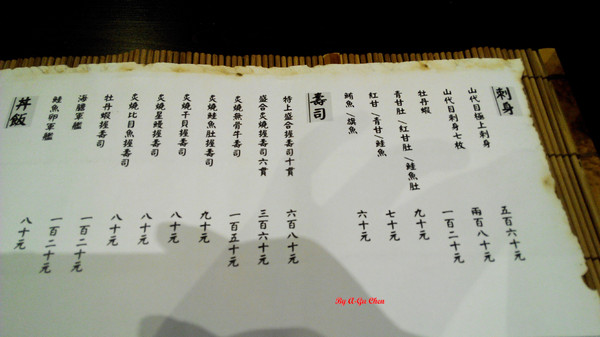 刺身
山代目極上刺身 五百六十元
山代目刺身七枚 兩百八十元
牡丹蝦 一百二十元
青甘肚/紅甘肚/鮭魚肚 九十元
紅甘/青甘/鮭魚 七十元
鮪魚/旗魚 六十元
壽司
特上盛合握壽司十貫 六百八十元
盛合炙燒握壽司六貫 三百六十元
炙燒無骨牛壽司 一百五十元
炙燒鮭魚肚握壽司 九十元
炙燒干貝握壽司 八十元
炙燒星鰻握壽司 八十元
炙燒比目魚握壽司 八十元
牡丹蝦握壽司 一百二十元
海膽軍艦 一百二十元
鮭魚卵軍艦 八十元
丼飯
By A-Gu Chen